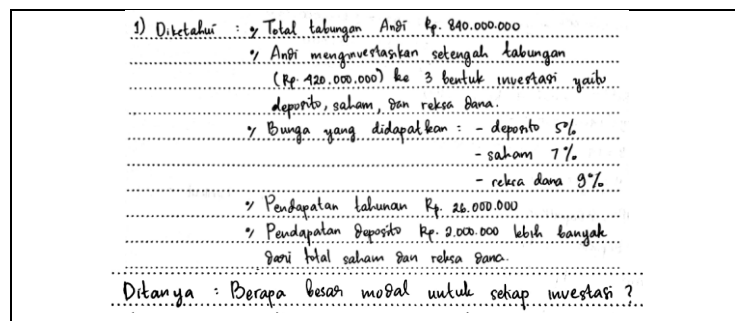 1) Diketahui : • Total tabungan Andi Rp. 840.000.000
• Andi menginvestasikan setengah tabungan
(Rp. 420.000.000) ke 3 bentuk investasi yaitu
deposito, saham, dan reksa dana.
• Bunga yang didapatkan : - deposito 5%
- saham 7%
- reksa dana 9%
• Pendapatan tahunan Rp. 26.000.000
• Pendapatan deposito Rp. 2.000.000 lebih banyak
dari total saham dan reksa dana.
Ditanya : Berapa besar modal untuk setiap investasi ?